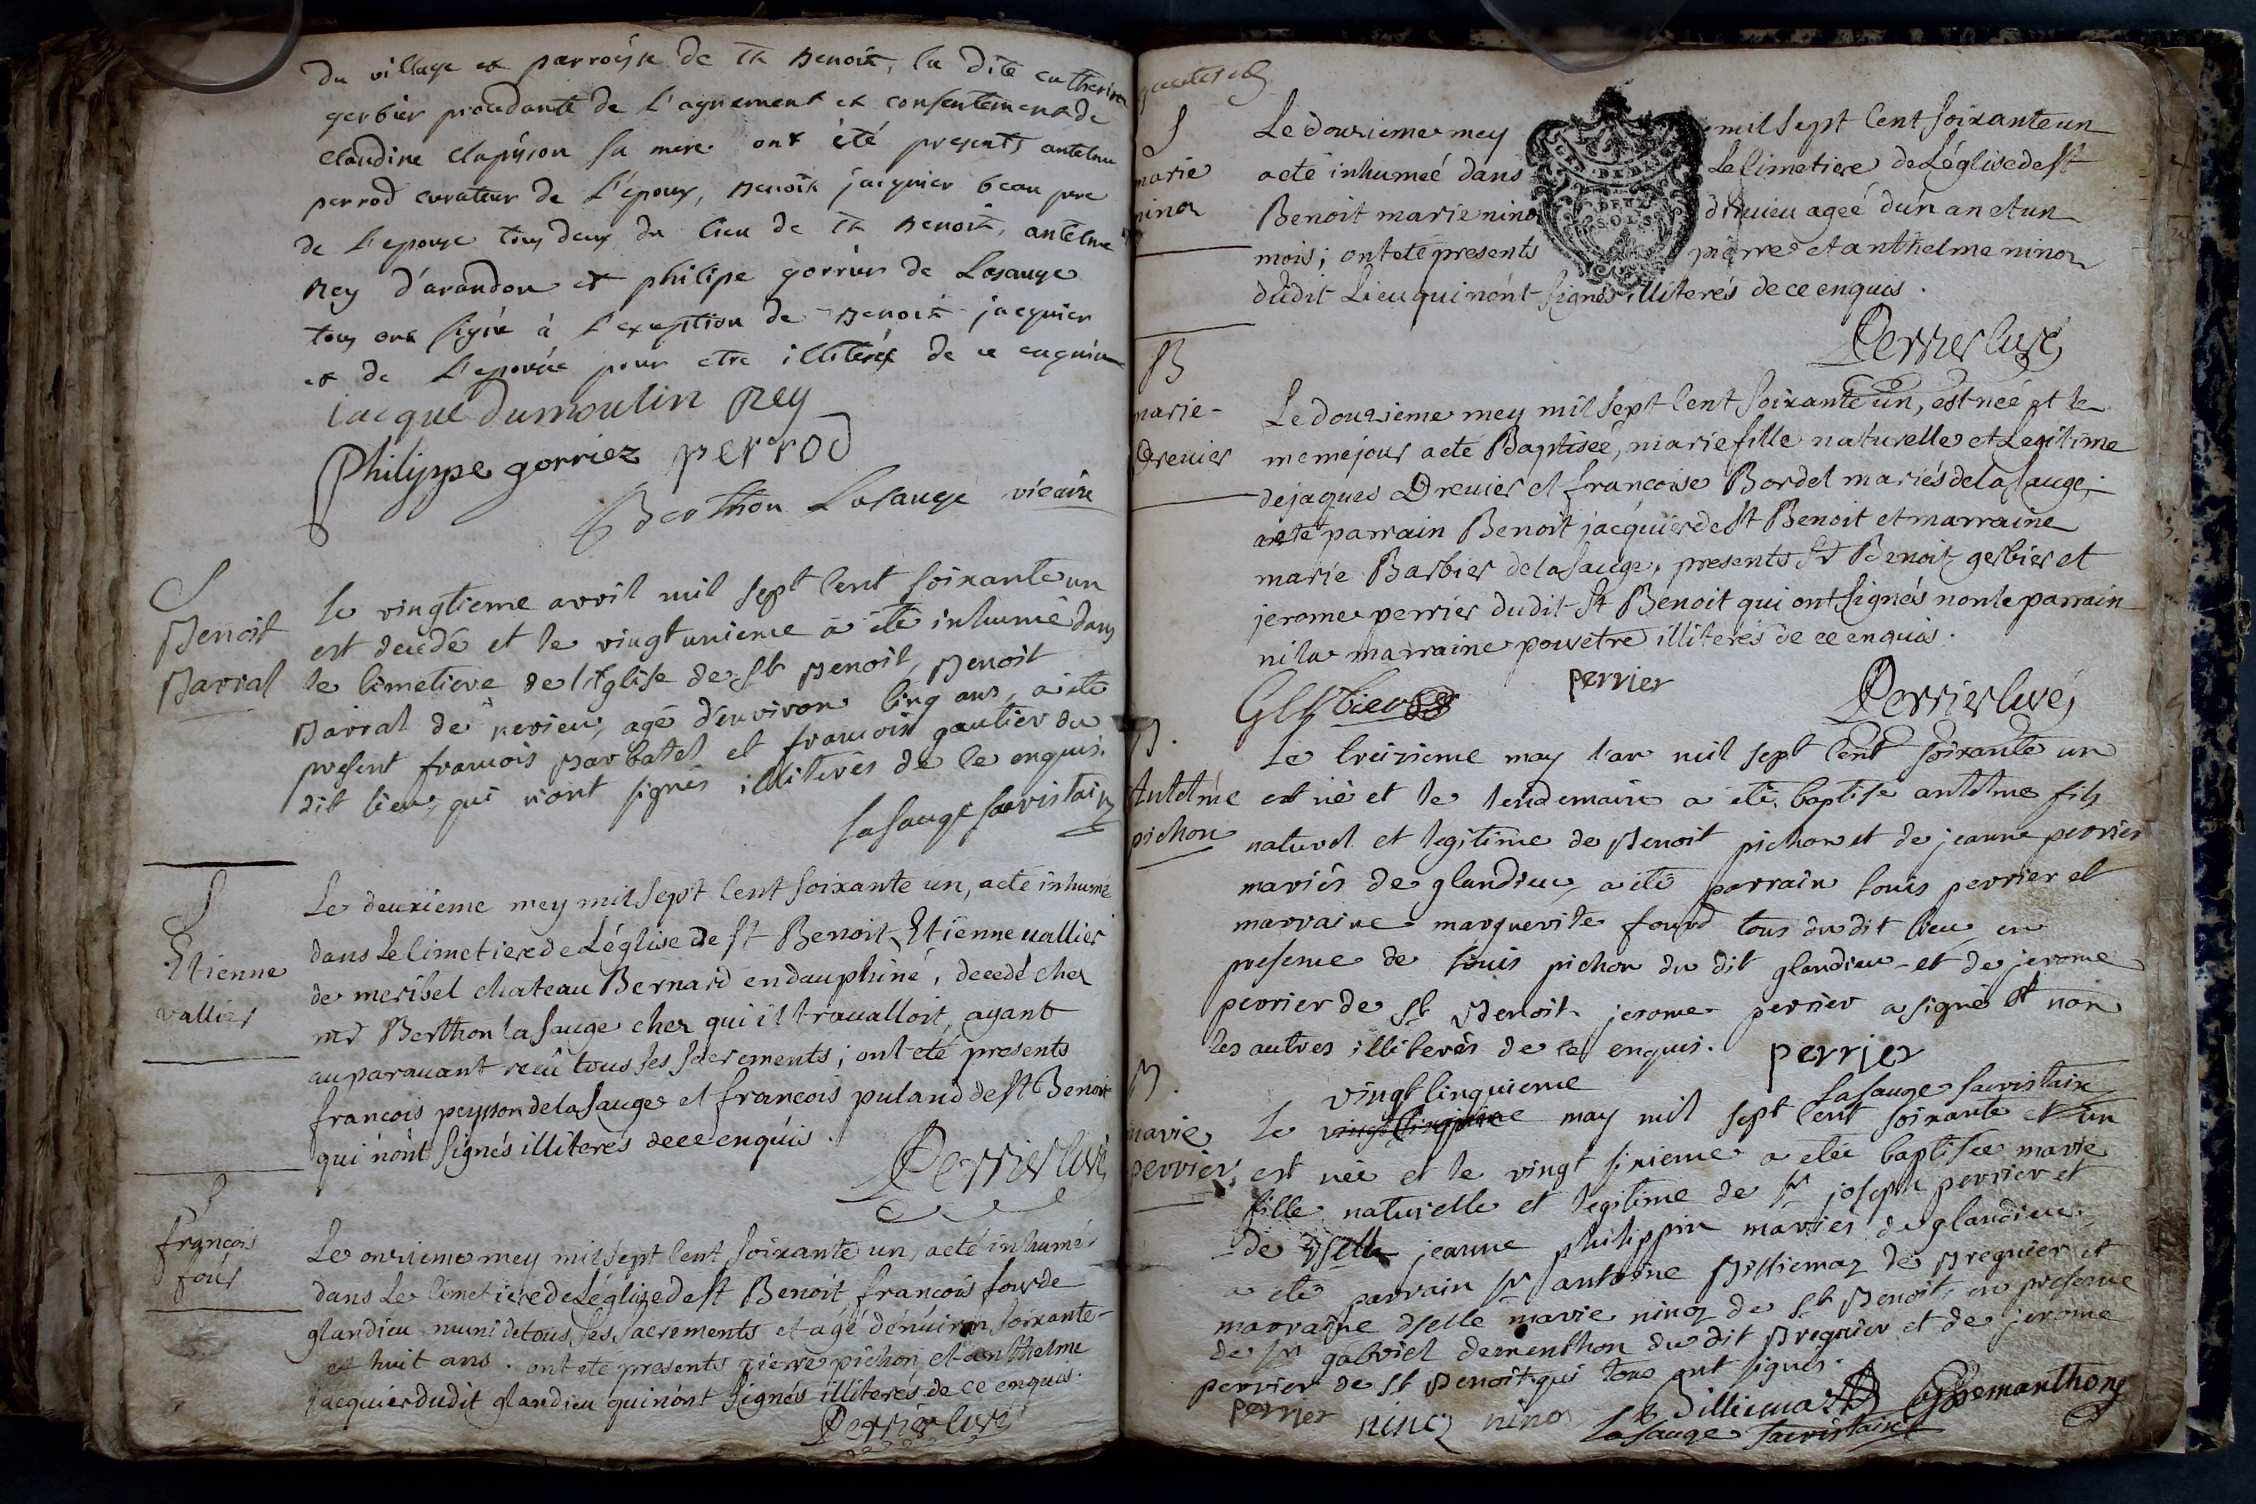 du village et parroisse de St Benoit, la dite catherine
gerbier procedante de l'agrement et consentement de
claudine clapisson sa mere ont été presents antelme
perrod curateur de l'époux, Benoit jacquier beau pere
de l'epouse tous deux du lieu de St Benoit, antelme
Rey d'arandon et philipe gorrier de Lasauge
tous ont signé à l'exeption de Benoit jacquier
et de l'epouse pour etre illiterés de ce enquis
jacque dumoulin Rey
Philippe gorriez perrod
Berthon Lasauge vicaire
S
Benoit
Barral
le vingtieme avril mil sept cent soixante un
est decedé et le vingt unieme a été inhumé dans
le cimetiere de l'Eglise de St Benoit, Benoit
Barral de nerieu, agé d'environ cinq ans, a été
present francois Barbatel et francois gautier du
dit lieu, qui n'ont signés illiterés de ce enquis.
Lasauge sacristain
S
Etienne
vallier
Le deuxieme mey mil sept cent soixante un, a eté inhumé
dans Le cimetiere de L'église de St Benoit, Etienne vallier
de meribel chateau Bernard en dauphiné, decedé chez
mr Berthon la sauge chez qui il travalloit, ayant
auparavant reçû tous ses sacrements; ont eté presents
francois peysson de la sauge et francois puland de St Benoit
qui n'ont signés illiterés de ce enquis.
Perrier curé
S
françois
four
Le onzieme mey mil sept cent soixante un, a eté inhumé
dans Le cimetiere de L'églize de St Benoit francois four de
glandieu muni de tous ses sacrements et agé d'énviron soixante
et huit ans. ont eté presents pierre pichon et anthelme
jacquier dudit glandieu qui n'ont signés illiterés de ce enquis.
Perrier curé
S
marie
ninoz
Le douzieme mey mil sept cent soixante un
a eté inhumeé dans Le cimetiere de L'église de St
Benoit marie ninoz dimieu ageé d'un an et un
mois; ont eté presents pierre et anthelme ninoz
dudit Lieu qui n'ont signés illiterés de ce enquis.
Perrier curé
GEN. DE DIJON
DEUX
SOLS
B
marie
Drevier
Le douzieme mey mil sept cent soixante un, est neé et le
meme jour a eté Baptiseé, marie fille naturelle et Legitime
de jaques Drevier et francoise Bordel mariés de la sauge;
a eté parrain Benoit jacquier de St Benoit et marraine
marie Barbier de la sauge, presents Sr Benoit gerbier et
jerome perrier dudit St Benoit qui ont signés non le parrain
ni la marraine pour etre illiterés de ce enquis.
Gerbier perrier Perrier curé
B.
Antelme
pichon
Le treizieme may l'an mil sept cent soixante un
est né et le lendemain a été baptisé antelme fils
naturel et legitime de Benoit pichon et de jeanne perrier
mariés de glandieu, a été parrain louis perrier et
marraine marguerite four tous du dit lieu en
presence de louis pichon du dit glandieu et de jerome
perrier de St Benoit. jerome perrier a signé et non
les autres illiterés de ce enquis. perrier
Lasauge sacristain
B.
marie
perrier
vingt cinquieme
le may mil sept cent soixante et un
est neé et le vingt sixieme a eteé baptiseé marie
fille naturelle et legitime de Sr joseph perrier et
de dselle jeanne philippin mariés de glandieu,
a eté parrain Sr antoine Billiemaz de Bregnier et
marraine dselle marie ninoz de St Benoit, en presence
de Sr gabriel dementhon du dit Bregnier et de jerome
perrier de St Benoit qui tous ont signés.
perrier ninoz ninoz Billiemaz Demanthong
Lasauge sacristain